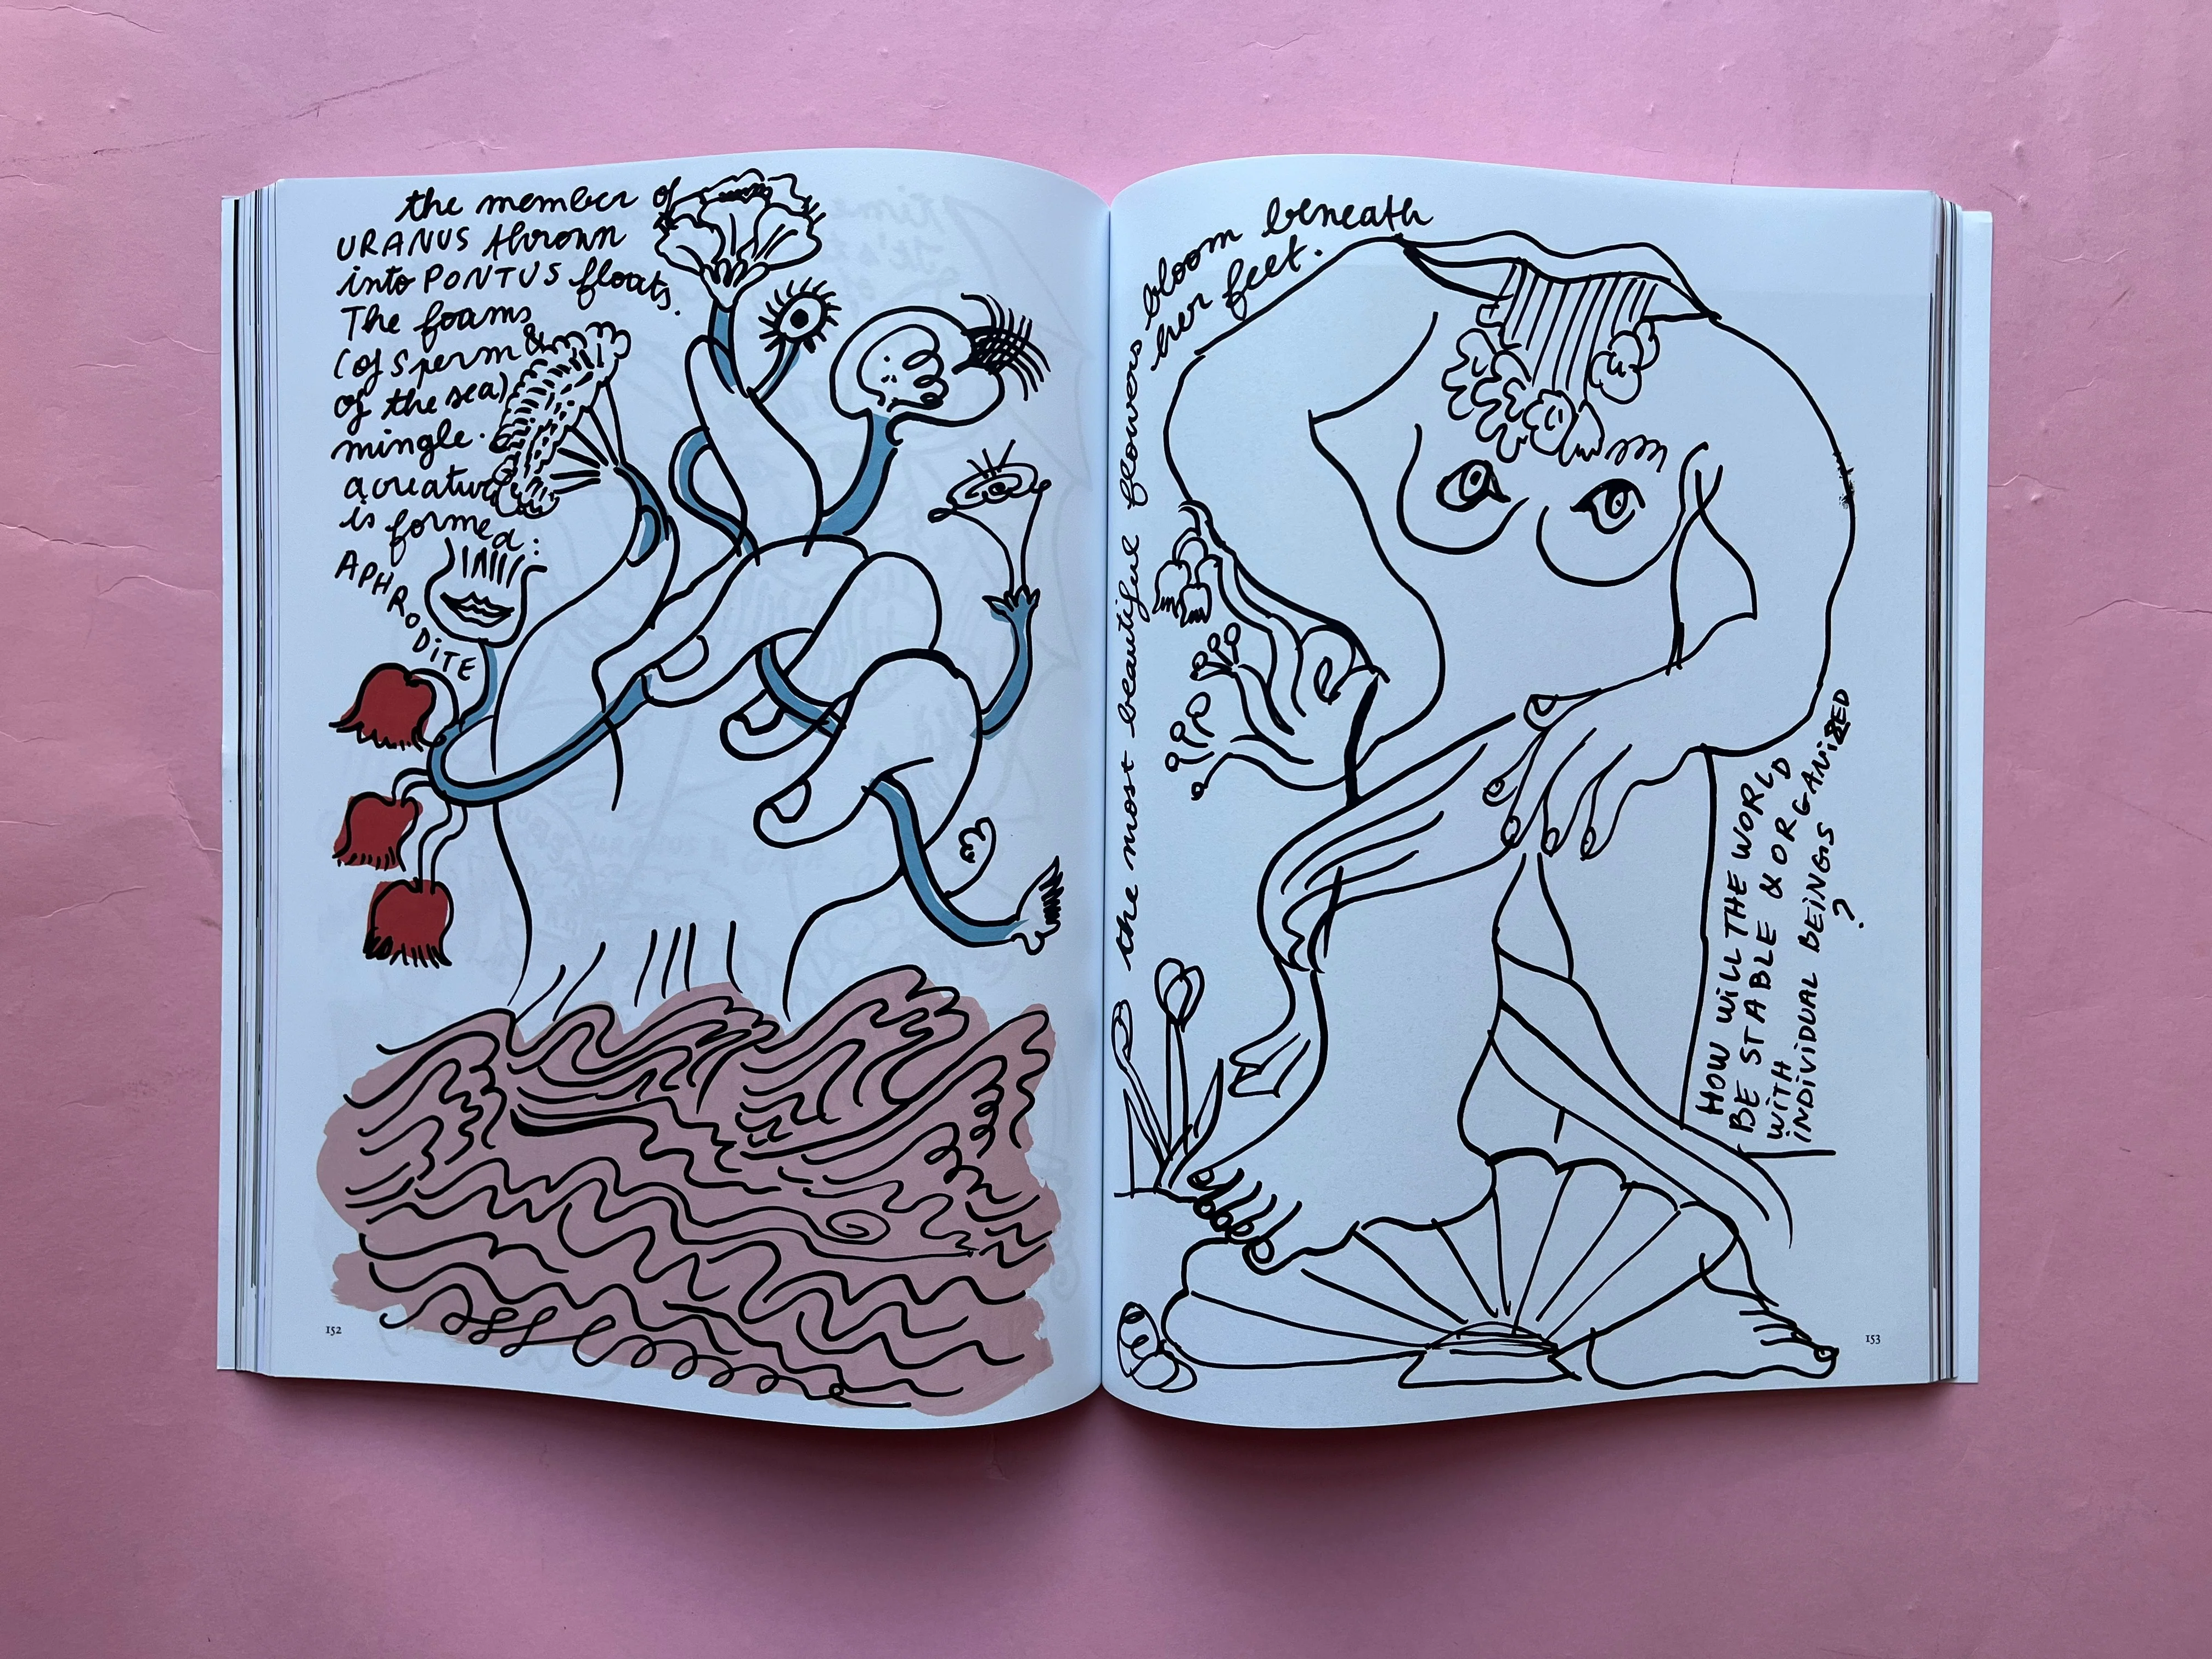 the member of
URANUS thrown
into PONTUS floats.
The foams
(of sperm &
of the sea)
mingle.
a creature
is formed:
APHRODITE
152
the most beautiful flowers bloom beneath
her feet.
HOW WILL THE WORLD
BE STABLE & ORGANIZED
WITH
INDIVIDUAL BEINGS
?
153